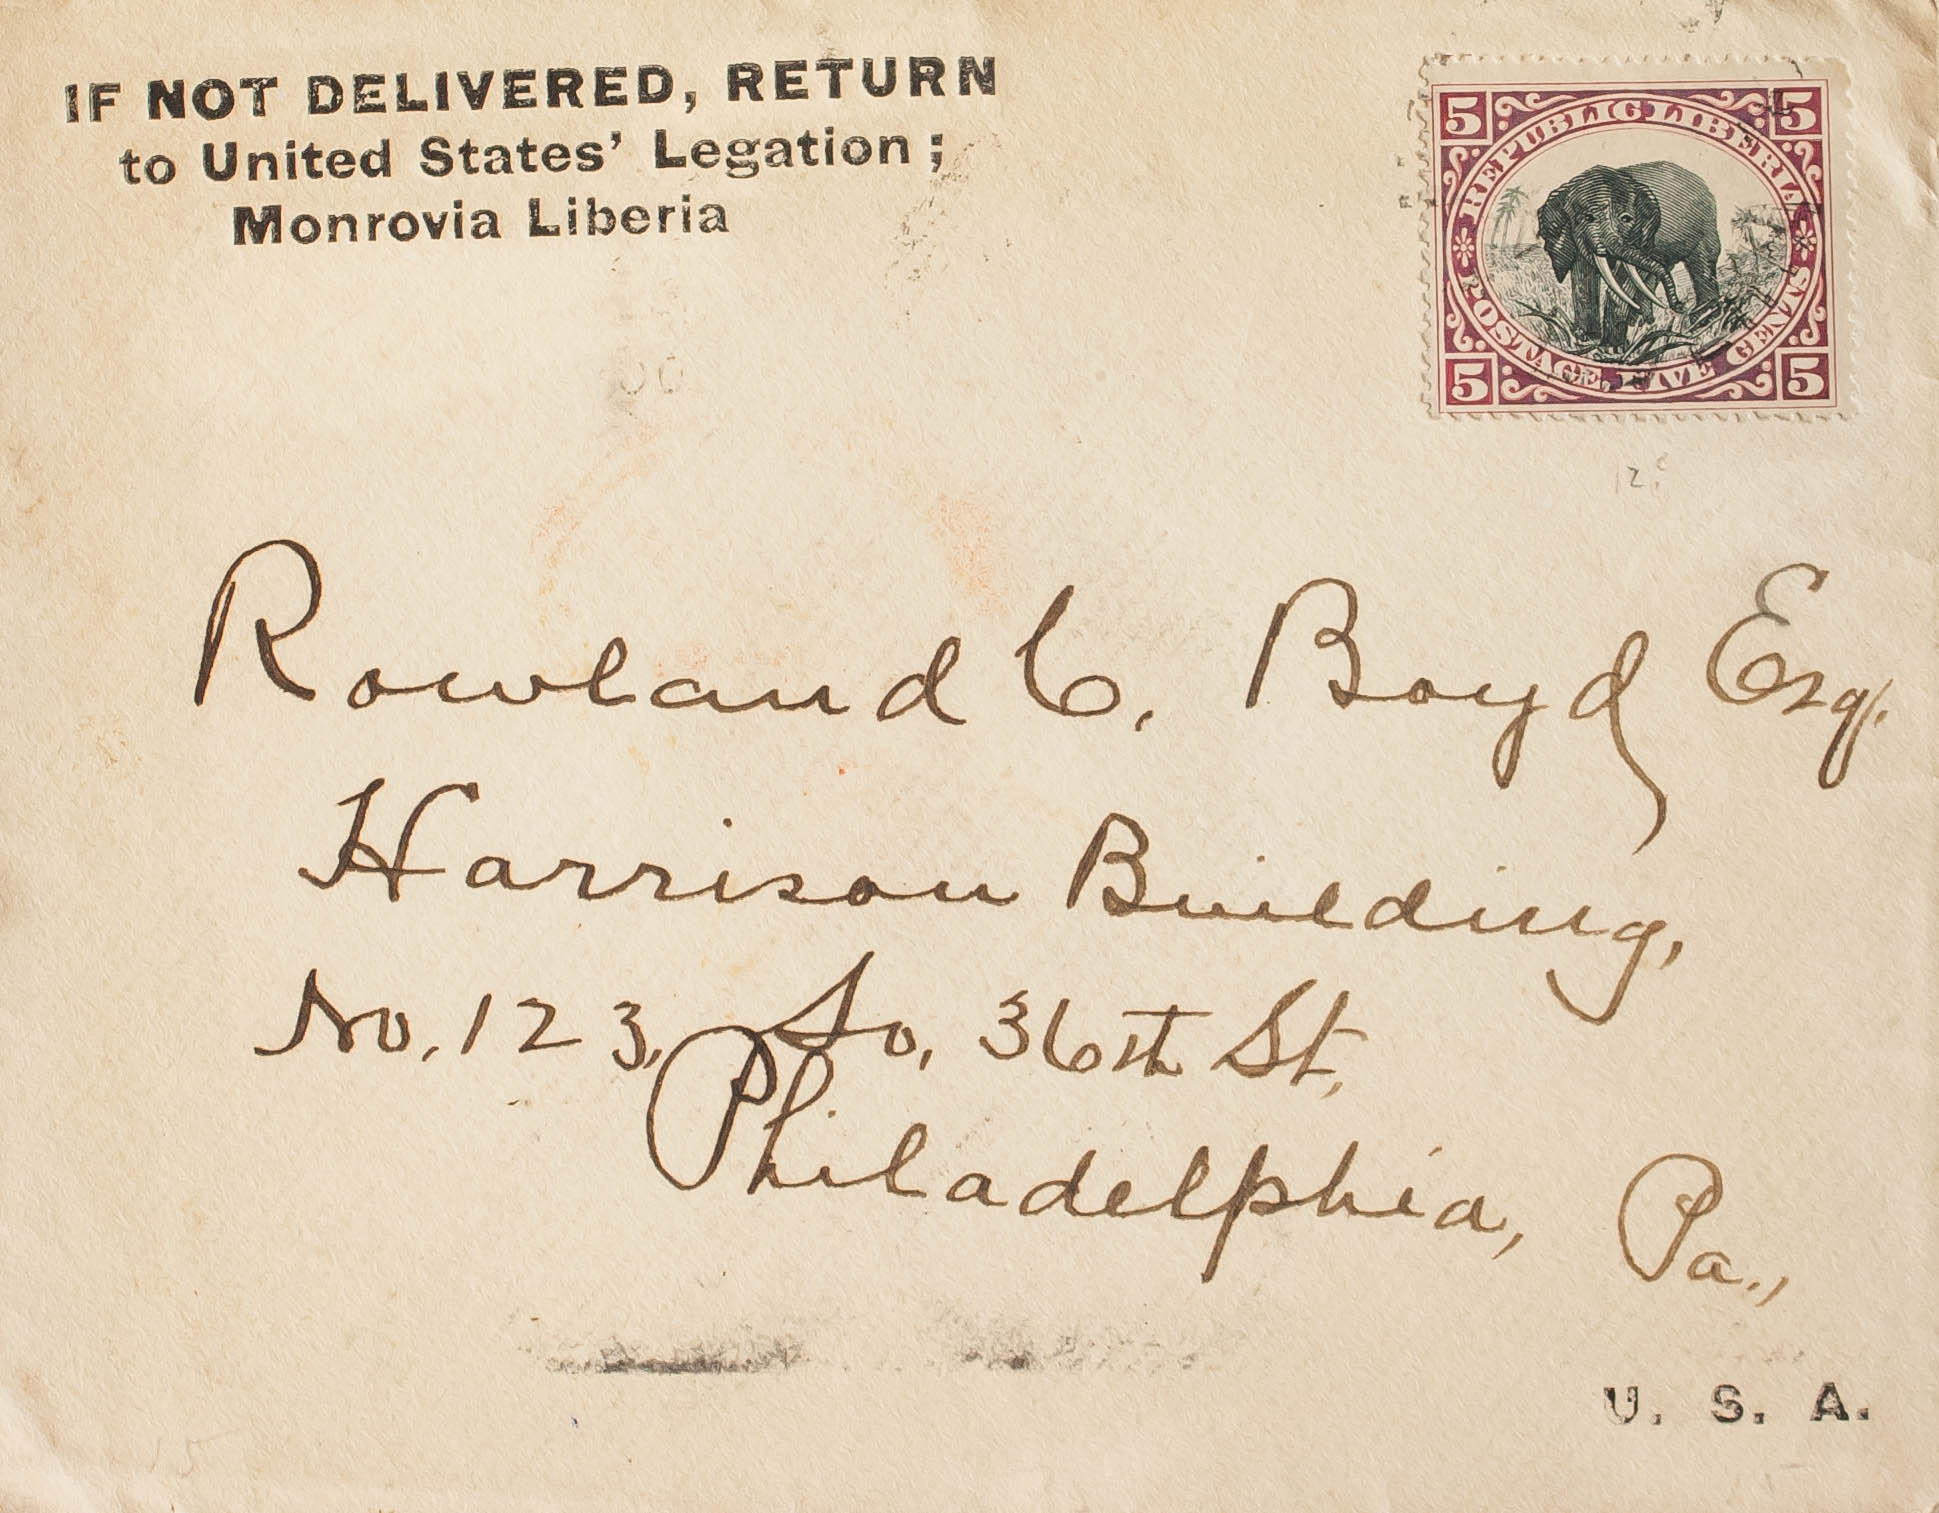 IF NOT DELIVERED, RETURN
to United States' Legation;
Monrovia Liberia
5 5
REPUBLIC LIBERIA
POSTAGE, FIVE CENTS
5 5
12c
Rowland C. Boyd Esq.
Harrison Building,
No. 123, So. 36th St.
Philadelphia, Pa.,
U. S. A.